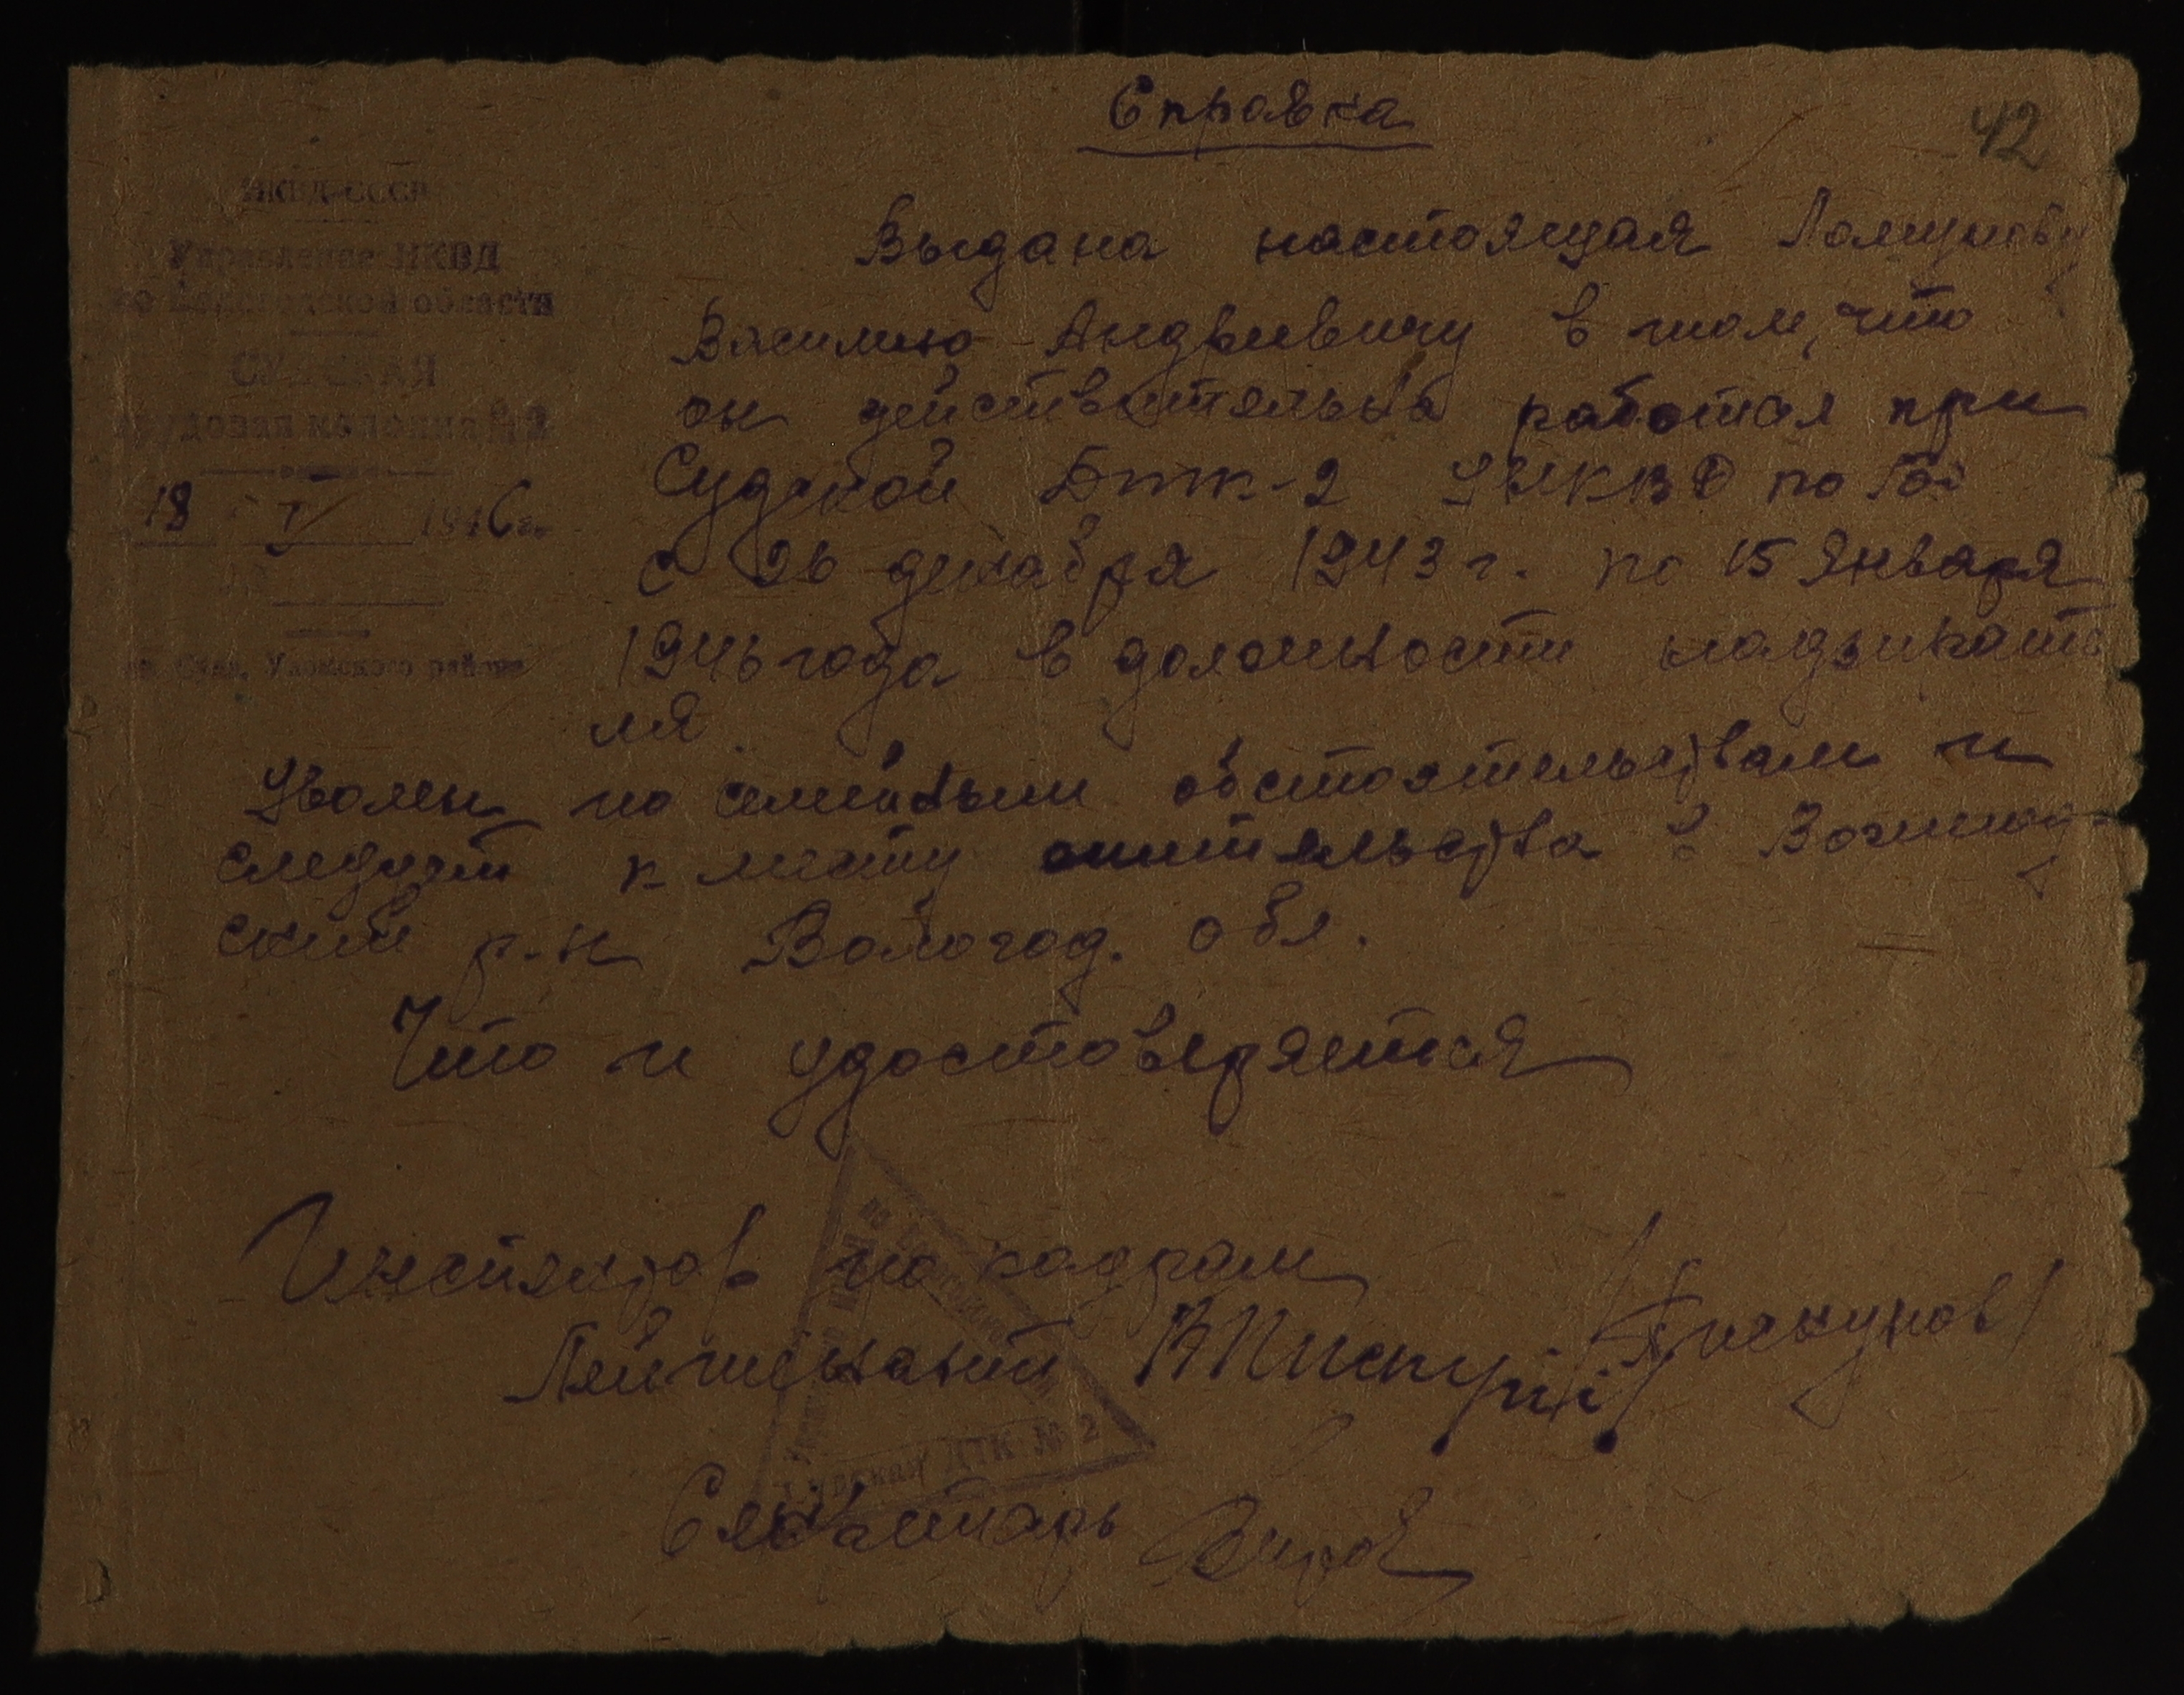 Справка
42
НКВД-СССР
Управление НКВД
по Вологодской области
СУДСКАЯ
трудовая колонна № 2
18 " I 1946 г.
Уломского района
Выдана настоящая
Василию Андреевичу в том, что
он действительно работал при
Судской УНКВД по
с 26 декабря 1943 г. по 15 Января
1946 года в должности надзирате
ля.
Уволен по семейным обстоятельствам и
следует к месту жительства в
ский р-н Вологод. обл.
Что и удостоверяется
Инспектор по кадрам
Лейтенант /Пискунов/
Судская ДТК № 2
Секретарь